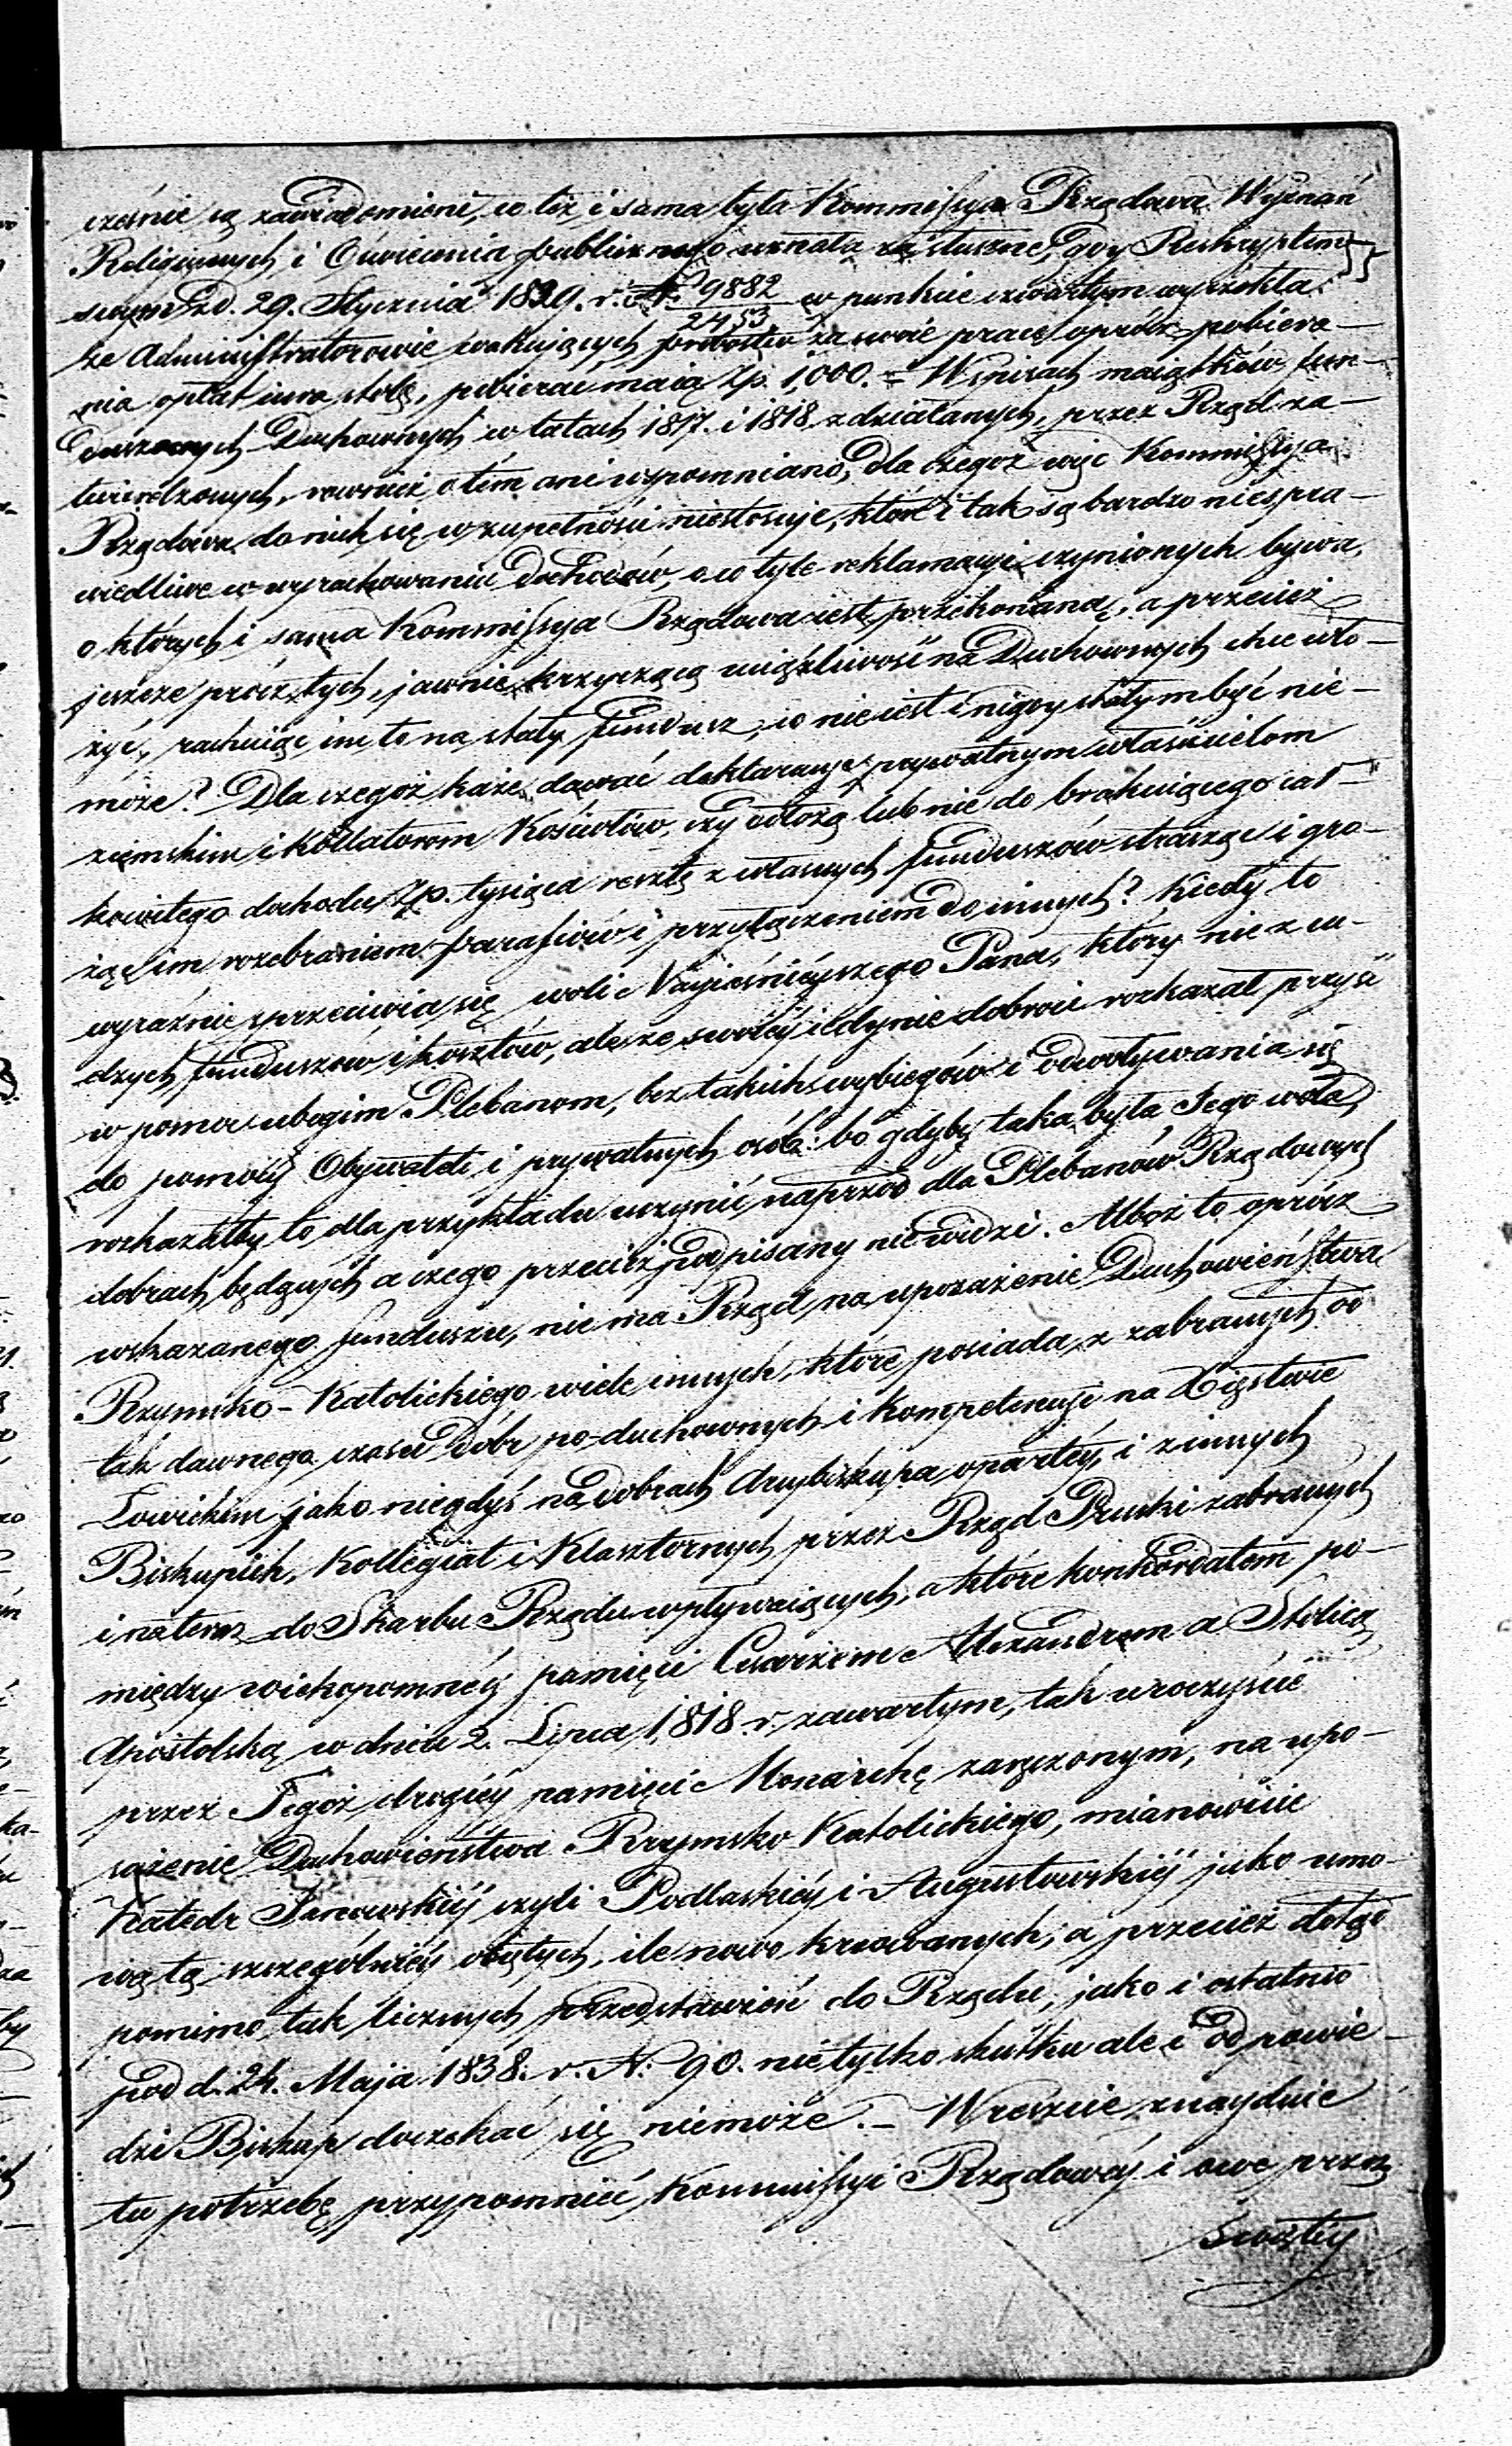 cześnie są zawiadomieni, co też i sama była Kommissyja Rządowa Wyznań
Religijnych i Oświecenia publicznego uznała za słuszne, gdy Reskryptem
swym z d. 29. Stycznia 1839. r. N. 9882/2453 w punkcie czwartym wyrzekła:
że Administratorowie wakujących probostw za swoie pracę oprócz pobiera-
nia opłat iura stolę, pobierać maią Zp. 1,000. = W spisach maiątków fun-
duszowych Duchownych w latach 1817. i 1818 zdziałanych, przez Rząd za-
twierdzonych, rownież o tém ani wspomniano, dla czegoż więc Kommissyja
Rządowa do nich się w zupełności niestosuje, które i tak są bardzo niespra-
wiedliwe w wyrachowaniu dochodów, o co tyle reklamacyi czynionych bywa,
o których i sama Kommissyja Rządowa iest przekonaną, a przecież
jeszcze prócz tych, jawnie krzyczącą uciążliwość na Duchownych chce wło-
żyć, rachuiąc im to na stały fundusz, co nie iest i nigdy stałym być nie-
może? Dla czegoż każe dawać deklaracyje prywatnym właścicielom
ziemskim i Kollatorom Kościołów, czy dołożą lub nie do brakuiącego cał-
kowitego dochodu Zp. tysiąca resztę z własnych funduszów strasząc i gro-
żąc im rozebraniem parafiiów i przyłączeniem do innych? Kiedy to
wyraźnie sprzeciwia się woli Nayiaśnieyszego Pana, który nie z cu-
dzych funduszów i kosztów, ale ze swoiéy iedynie dobroci rozkazał przyść
w pomoc ubogim Plebanom, bez takich wybiegów i odwoływania się
do pomocy Obywateli i prywatnych osób: bo gdyby taka była Jego wola,
rozkazałby to dla przykładu uczynić naprzód dla Plebanów Rządowych
dobrach będących a czego przecież podpisany niewidzi. Alboż to oprócz
wskazanego funduszu, nie ma Rząd na uposażenie Duchowieństwa
Rzymsko-Katolickiego wiele innych, które posiada z zabranych od
tak dawnego czasu dóbr po-duchownych i kompetencyi na Xięstwie
Łowickim jako niegdyś na dobrach Arcybiskupa opartéy, i z innych
Biskupich, Kollegiat i Klasztornych przez Rząd Pruski zabranych
i na teraz do Skarbu Rządu wpływaiących, a które konkordatem po-
między wiekopomnéy pamięci Cesarzem Alexandrem a Stolicą
Apostolską w dniu 2. Lipca 1,818. r. zawartym, tak uroczyście
przez Tegoż drogiéy pamięci Monarchę zaręczonym, na upo-
sażenie Duchowieństwa Rzymsko-Katolickiego, mianowicie
Katedr Janowskiéy czyli Podlaskiéy i Augustowskiéy jako umo-
wą tą szczególniéy obiętych, ile nowo kreowanych, a przecież dotąd
pomimo tak licznych przedstawień do Rządu, jako i ostatnio
pod d. 24. Maja 1838. r. N. 90. nietylko skutku ale i odpowie-
dzi Biskup doczekać się niemoże. – Wreszcie znayduie
tu potrzebę przypomnieć Kommissyi Rządowéy i owe przez